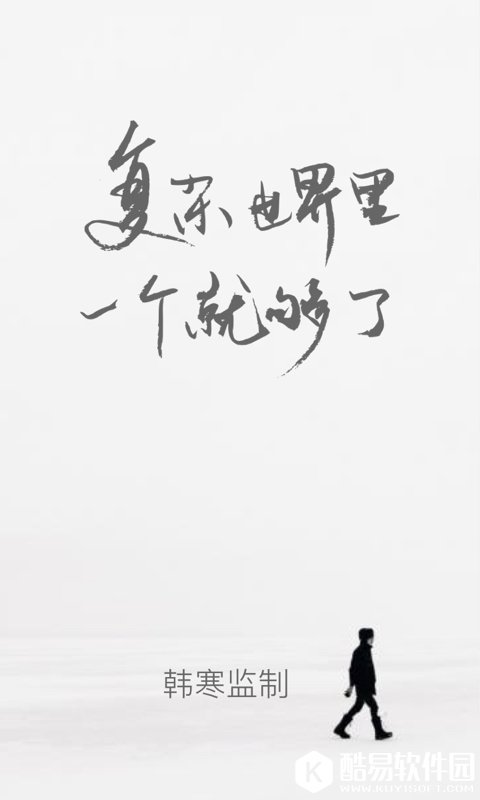 复杂世界里
一个就够了
韩寒监制
K 酷易软件园
WWW.KUYISOFT.COM